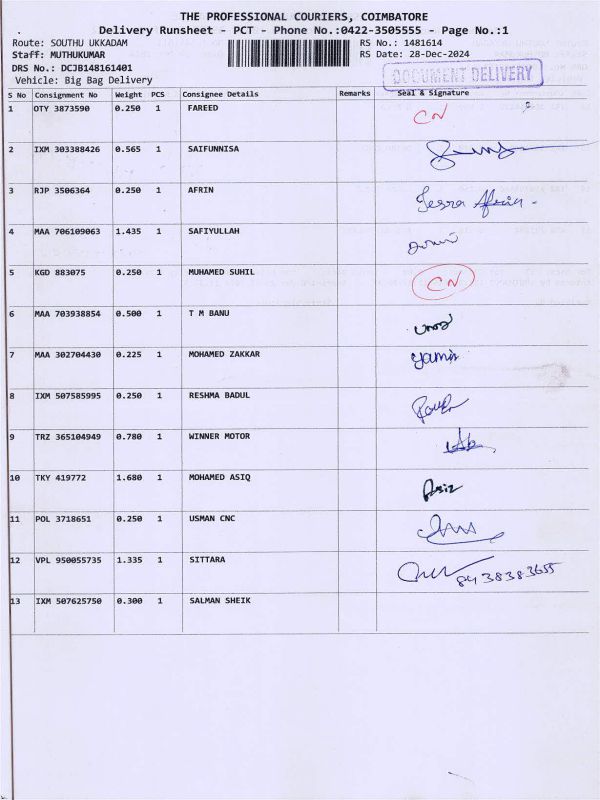 THE PROFESSIONAL COURIERS, COIMBATORE
Delivery Runsheet - PCT - Phone No.:0422-3505555 - Page No.:1
Route: SOUTHU UKKADAM RS No.: 1481614
Staff: MUTHUKUMAR RS Date: 28-Dec-2024
DRS No.: DCJB148161401
Vehicle: Big Bag Delivery
DOCUMENT DELIVERY
S No Consignment No Weight PCS Consignee Details Remarks Seal & Signature
1 OTY 3873590 0.250 1 FAREED CN
2 IXM 303388426 0.565 1 SAIFUNNISA
3 RJP 3506364 0.250 1 AFRIN
4 MAA 706109063 1.435 1 SAFIYULLAH
5 KGD 883075 0.250 1 MUHAMED SUHIL CN
6 MAA 703938854 0.500 1 T M BANU
7 MAA 302704430 0.225 1 MOHAMED ZAKKAR
8 IXM 507585995 0.250 1 RESHMA BADUL
9 TRZ 365104949 0.780 1 WINNER MOTOR
10 TKY 419772 1.680 1 MOHAMED ASIQ
11 POL 3718651 0.250 1 USMAN CNC
12 VPL 950055735 1.335 1 SITTARA 8438383655
13 IXM 507625750 0.300 1 SALMAN SHEIK